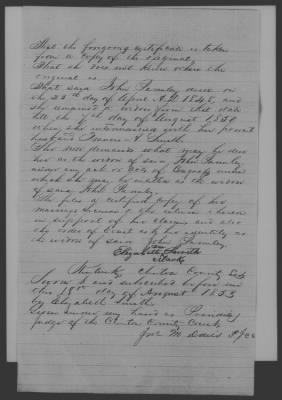 That the foregoing certificate is taken
from a copy of the original
That she does not know where the
original is
That said John Parmley died on
the 25th day of April A.D. 1848, and
she remained a widow from that date
till the 7th day of August 1850
when she intermarried with her present
husband A. Smith.
She now demands what may be due
her as the widow of said John Parmley
under any act or acts of Congress under
which she may be entitled as the widow
of said John Parmley.
She files a certified copy of her
marriage license & the return thereon
in support of her claim and also
the order of Court as to her identity as
the widow of said John Parmley.
her
Elizabeth Smith
mark
Kentucky Clinton County Sct
Sworn to and subscribed before me
this 18th day of August 1853
by Elizabeth Smith.
Given under my hand as Presiding
Judge of the Clinton County Court
M Davis P J C C